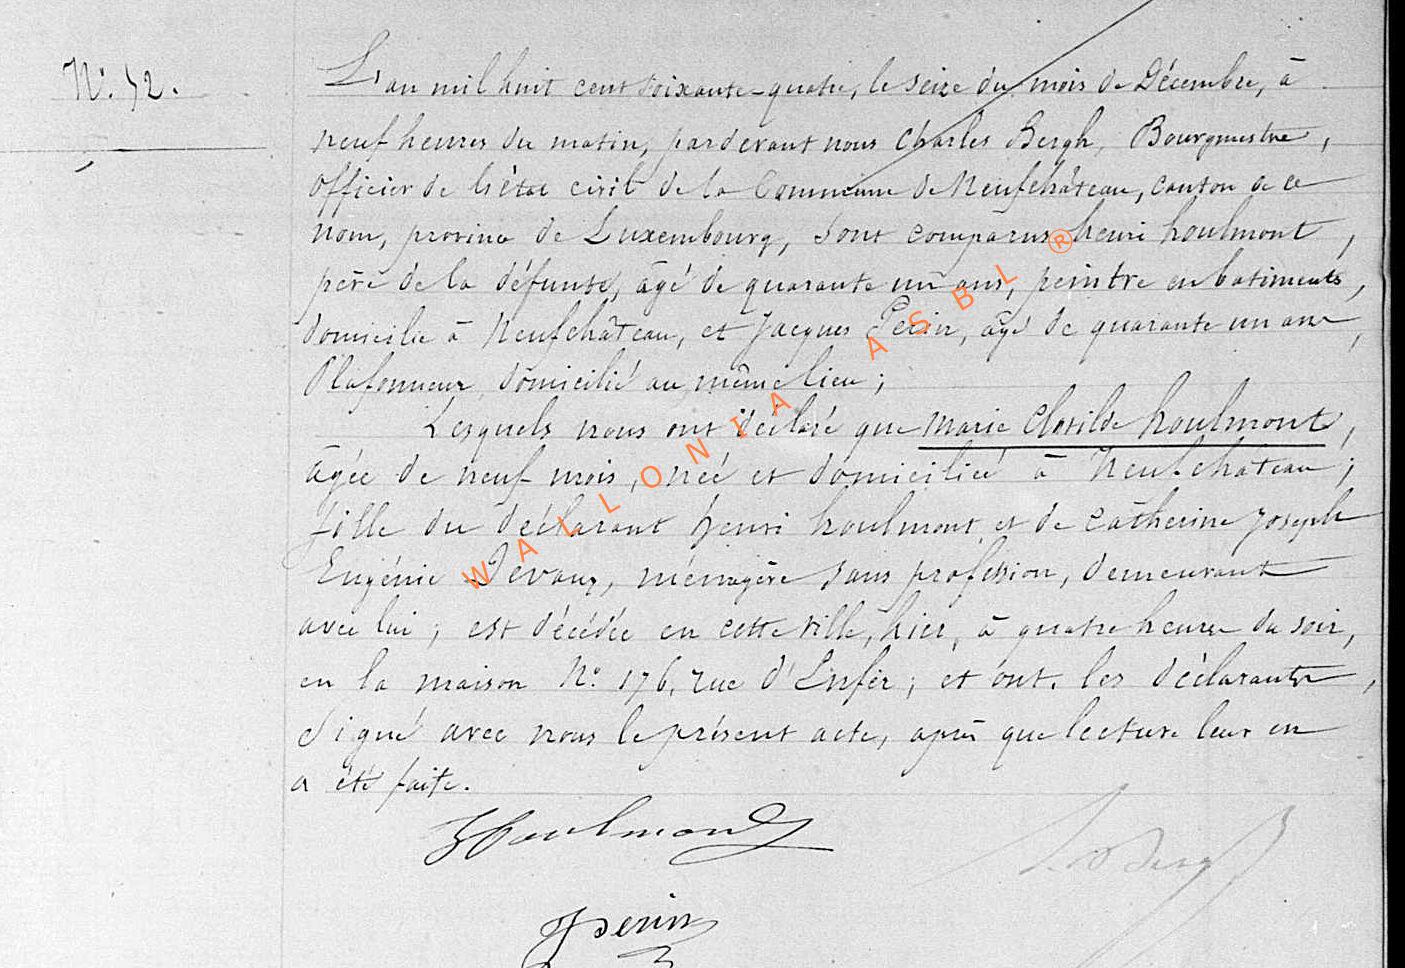 N°. 52.
L'an mil huit cent soixante-quatre, le seize du mois de Décembre, à
neuf heures du matin, pardevant nous Charles Bergh, Bourgmestre,
officier de l'état civil de la Commune de Neufchâteau, canton de ce
nom, province de Luxembourg, sont comparus henri houlmont,
père de la défunte, âgé de quarante un ans, peintre en batiments,
domicilié à Neufchâteau, et Jacques Perin, âgé de quarante un ans,
Plafonneur, domicilié au même lieu;
Lesquels nous ont déclaré que Marie Clotilde houlmont,
âgée de neuf mois, née et domiciliée à Neufchâteau;
fille du déclarant henri houlmont et de Catherine Joseph
Eugénie Devaux, ménagère sans profession, demeurant
avec lui; est décédée en cette ville, hier, à quatre heures du soir,
en la maison N°. 176, rue d'Enfer; et ont, les déclarants,
signé avec nous le présent acte, après que lecture leur en
a été faite.
HHoulmont
JPerin
WALLONIA ASBL ®